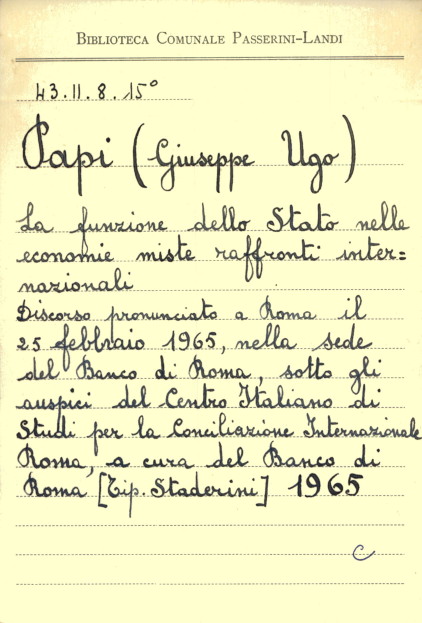 BIBLIOTECA COMUNALE PASSERINI-LANDI
43.II.8.15°
Papi (Giuseppe Ugo)
La funzione dello Stato nelle
economie miste raffronti inter=
nazionali
Discorso pronunciato a Roma il
25 febbraio 1965, nella sede
del Banco di Roma, sotto gli
auspici del Centro Italiano di
Studi per la Conciliazione Internazionale
Roma, a cura del Banco di
Roma [Tip. Staderini] 1965
C